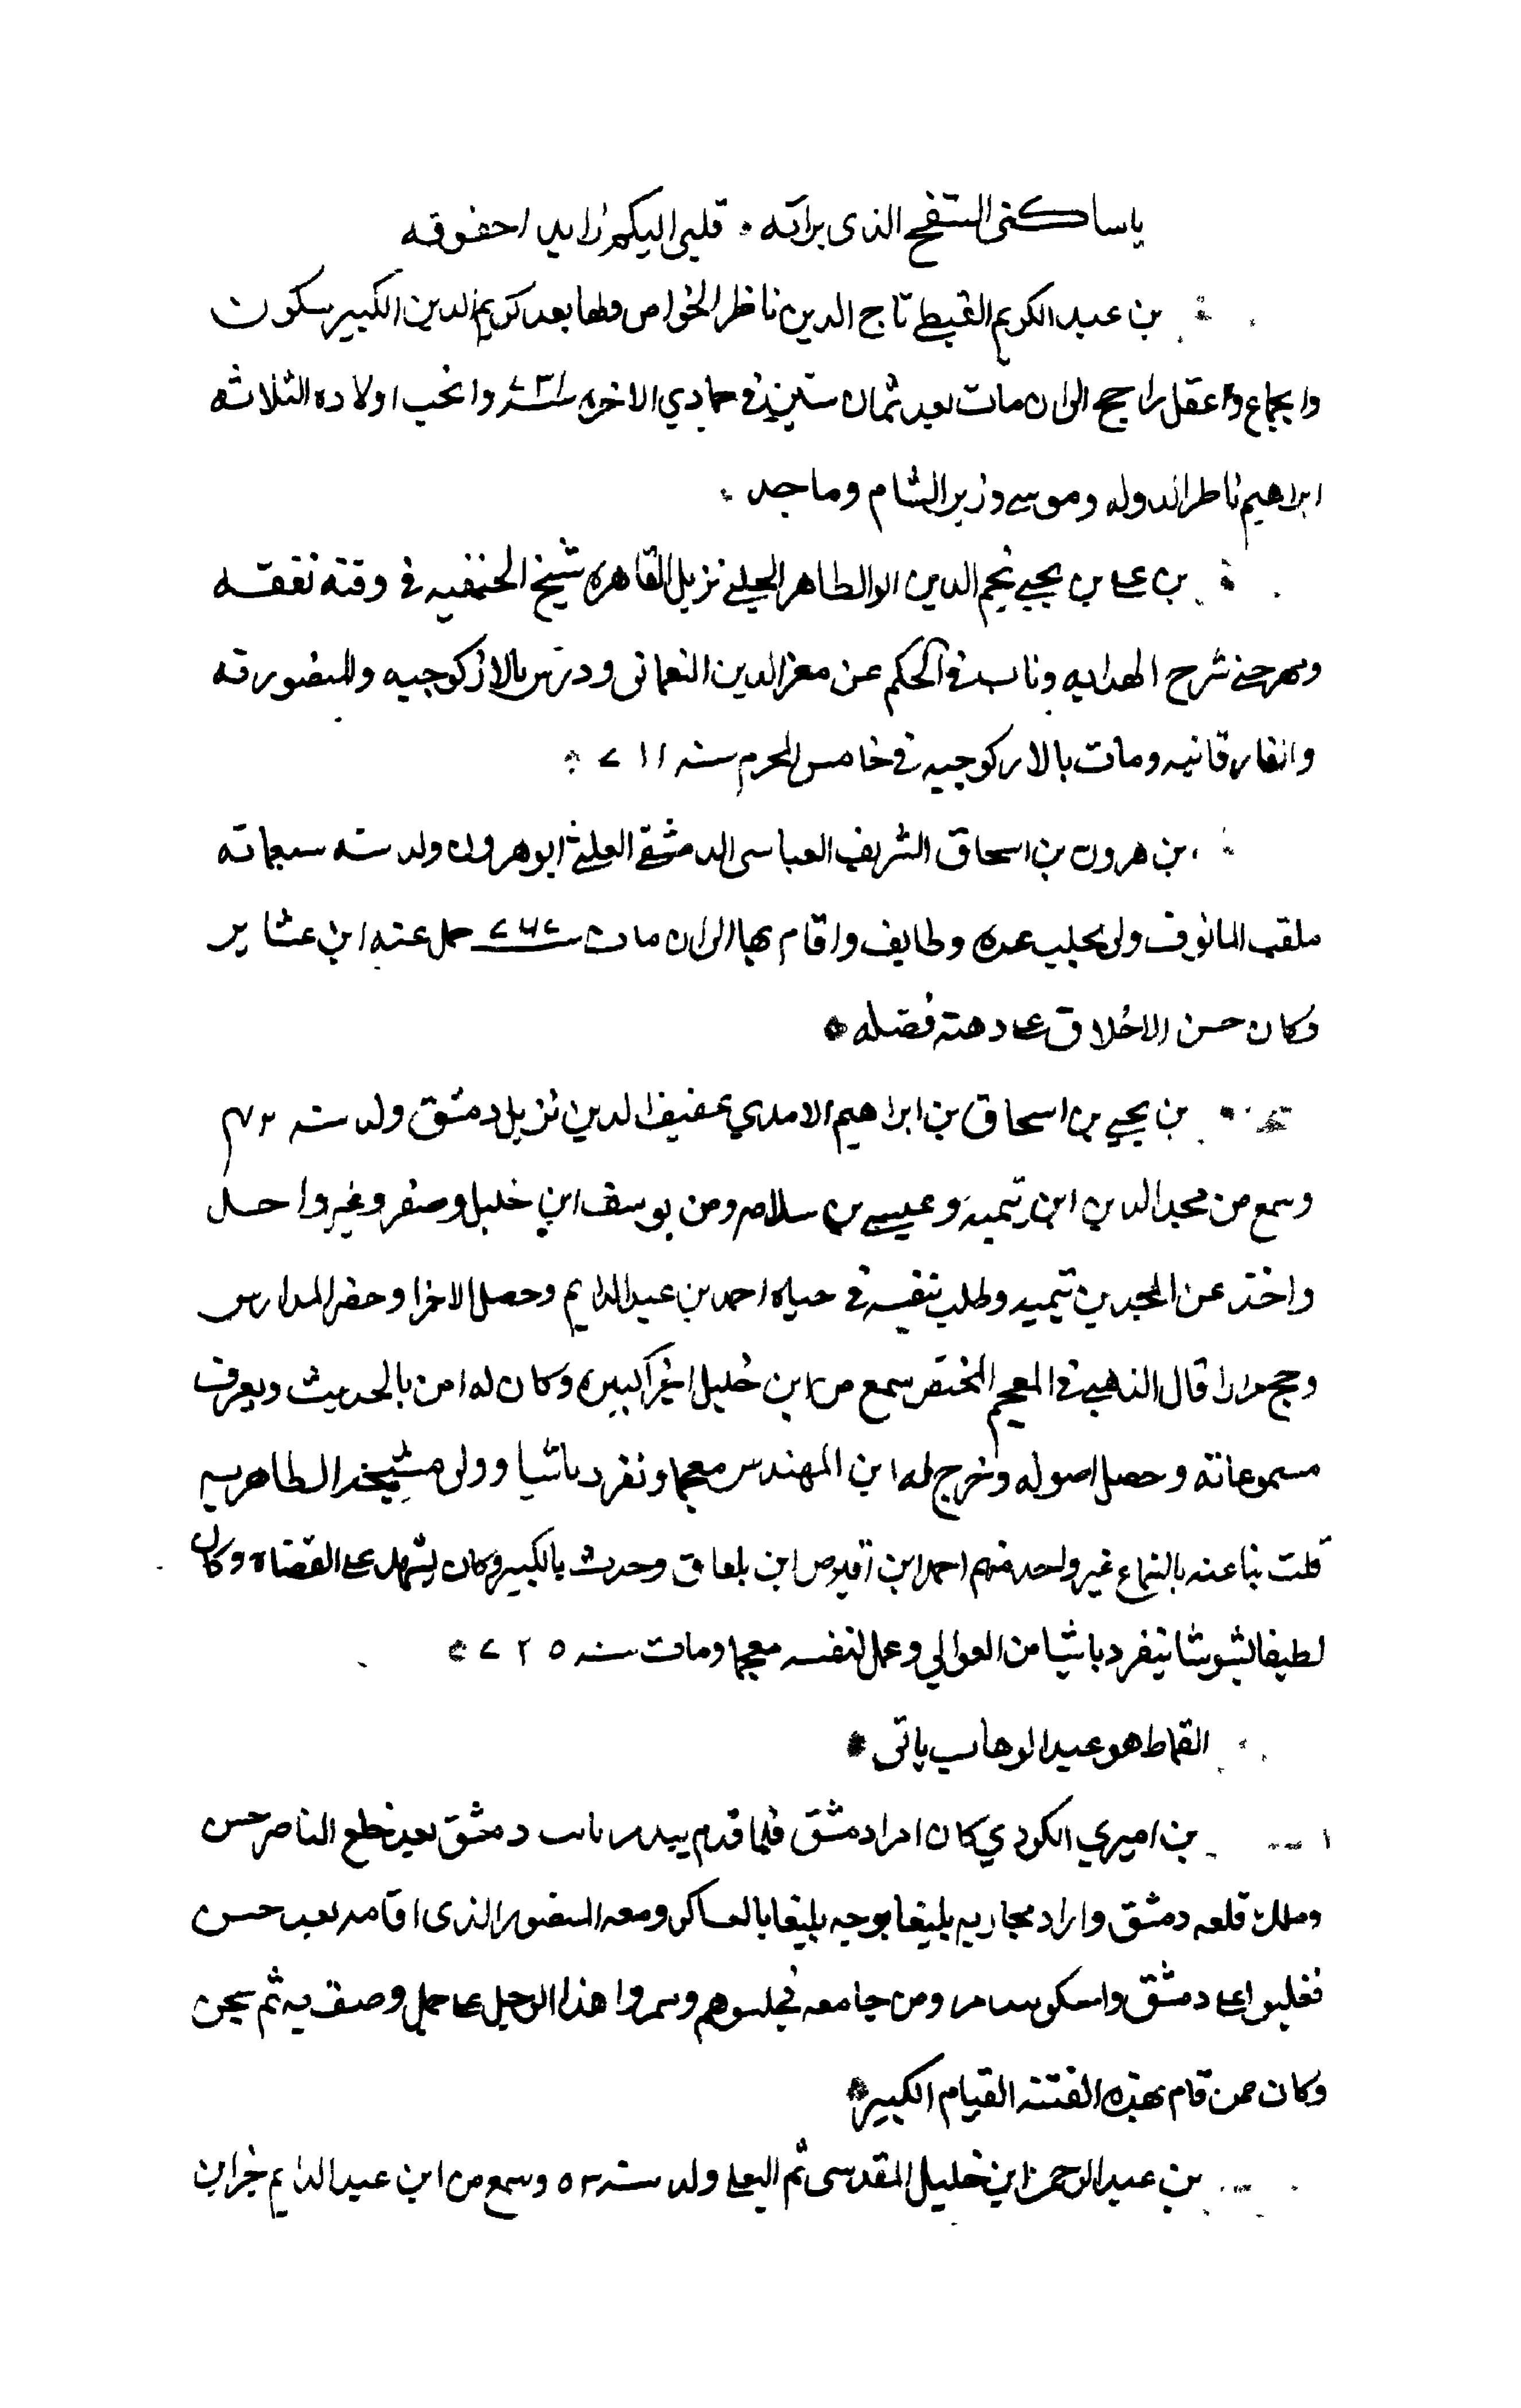 ياساكنى السفح الذى براته • قلبى اليكم زايد احفوقه
بن عبد الكريم القبطى تاج الدين ناظر الخواص ولها بعد كريم الدين الكبير سكون
وانجماع وعقل راجح الى ان مات بعد ثمان سنين فى جمادي الاخره سنه ٧٣١ وانجب اولاده الثلاثه
ابراهيم ناظر الدوله وموسى وزير الشام وماجد
بن على بن يحيى نجم الدين ابو الطاهر الحلبى نزيل القاهره شيخ الحنفيه فى وقته تفقه
ومهر حتى شرح الهدايه وناب فى الحكم عن معز الدين النعمانى ودرس بالازكوجيه والمنصوريه
والفارقانيه ومات بالاركوجيه فى خامس المحرم سنه ٧١١
بن هرون بن اسحاق الشريف العباسى الدمشقى ابو هرون ولد سنه سبعمائه
ملقب المانوف ولى بحلب عده وظايف واقام بها الى ان مات سنه ٧٦٧ حمل عنه ابن عشاير
وكان حسن الاخلاق على فضله
بن يحيى بن اسحاق بن ابراهيم الامدي عفيف الدين نزيل دمشق ولد سنه
وسمع من مجد الدين ابن تيميه وعيسى بن سلامه ومن يوسف ابن خليل وصقر وغير واحد
واخذ عن المجد بن تيميه وطلب بنفسه فى حياه احمد بن عبد الدايم وحصل الاجزا وحضر المدارس
وحج مرارا قال الذهبى فى المعجم المختص سمع من ابن خليل كبيره وكان له انس بالحديث ويعرف
مسموعاته وحصل اصوله وخرج له ابن المهندس معجما وتفرد باشيا وولى مشيخه الظاهريه
قلت ثنا عنه بالسماع غير واحد منهم احمد ابن ابن بلعاق وحدث بالكبير وكان يشهد على القضاه وكان
لطيفا بشوشا تيفرد باشيا من العوالي وعمل لنفسه معجما ومات سنه ٧٢٥
القماط هو عبد الوهاب ياتى
بن اميري الكردي كان امرا دمشق فلما قدم بيدمر نايب دمشق بعد خلع الناصر حسن
وملك قلعه دمشق واراد محاربه يلبغا توجه يلبغا بالعساكر ومعه المنصور الذى اقامه بعد حسن
فغلبوا على دمشق وامسكو بيدمر ومن جا معه فحبسوهم وسمروا هذا الرجل على جمل وطيف به ثم سجن
وكان ممن قام بهذه الفتنه القيام الكبير
بن عبد الرحمن ابن خليل المقدسى ثم البعلى ولد سنه ٥٣ وسمع من ابن عبد الدايم جز ابن